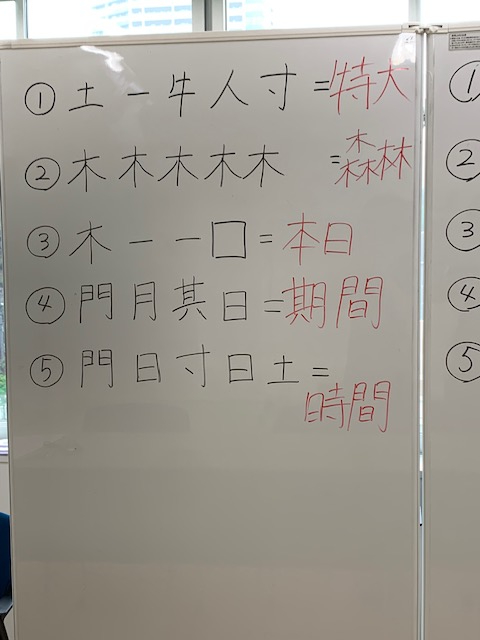 ① 土 一 牛 人 寸 =特大
② 木 木 木 木 木 =森林
③ 木 一 一 口 = 本日
④ 門 月 其 日 =期間
⑤ 門 日 寸 日 土 =
時間
①
②
③
④
⑤